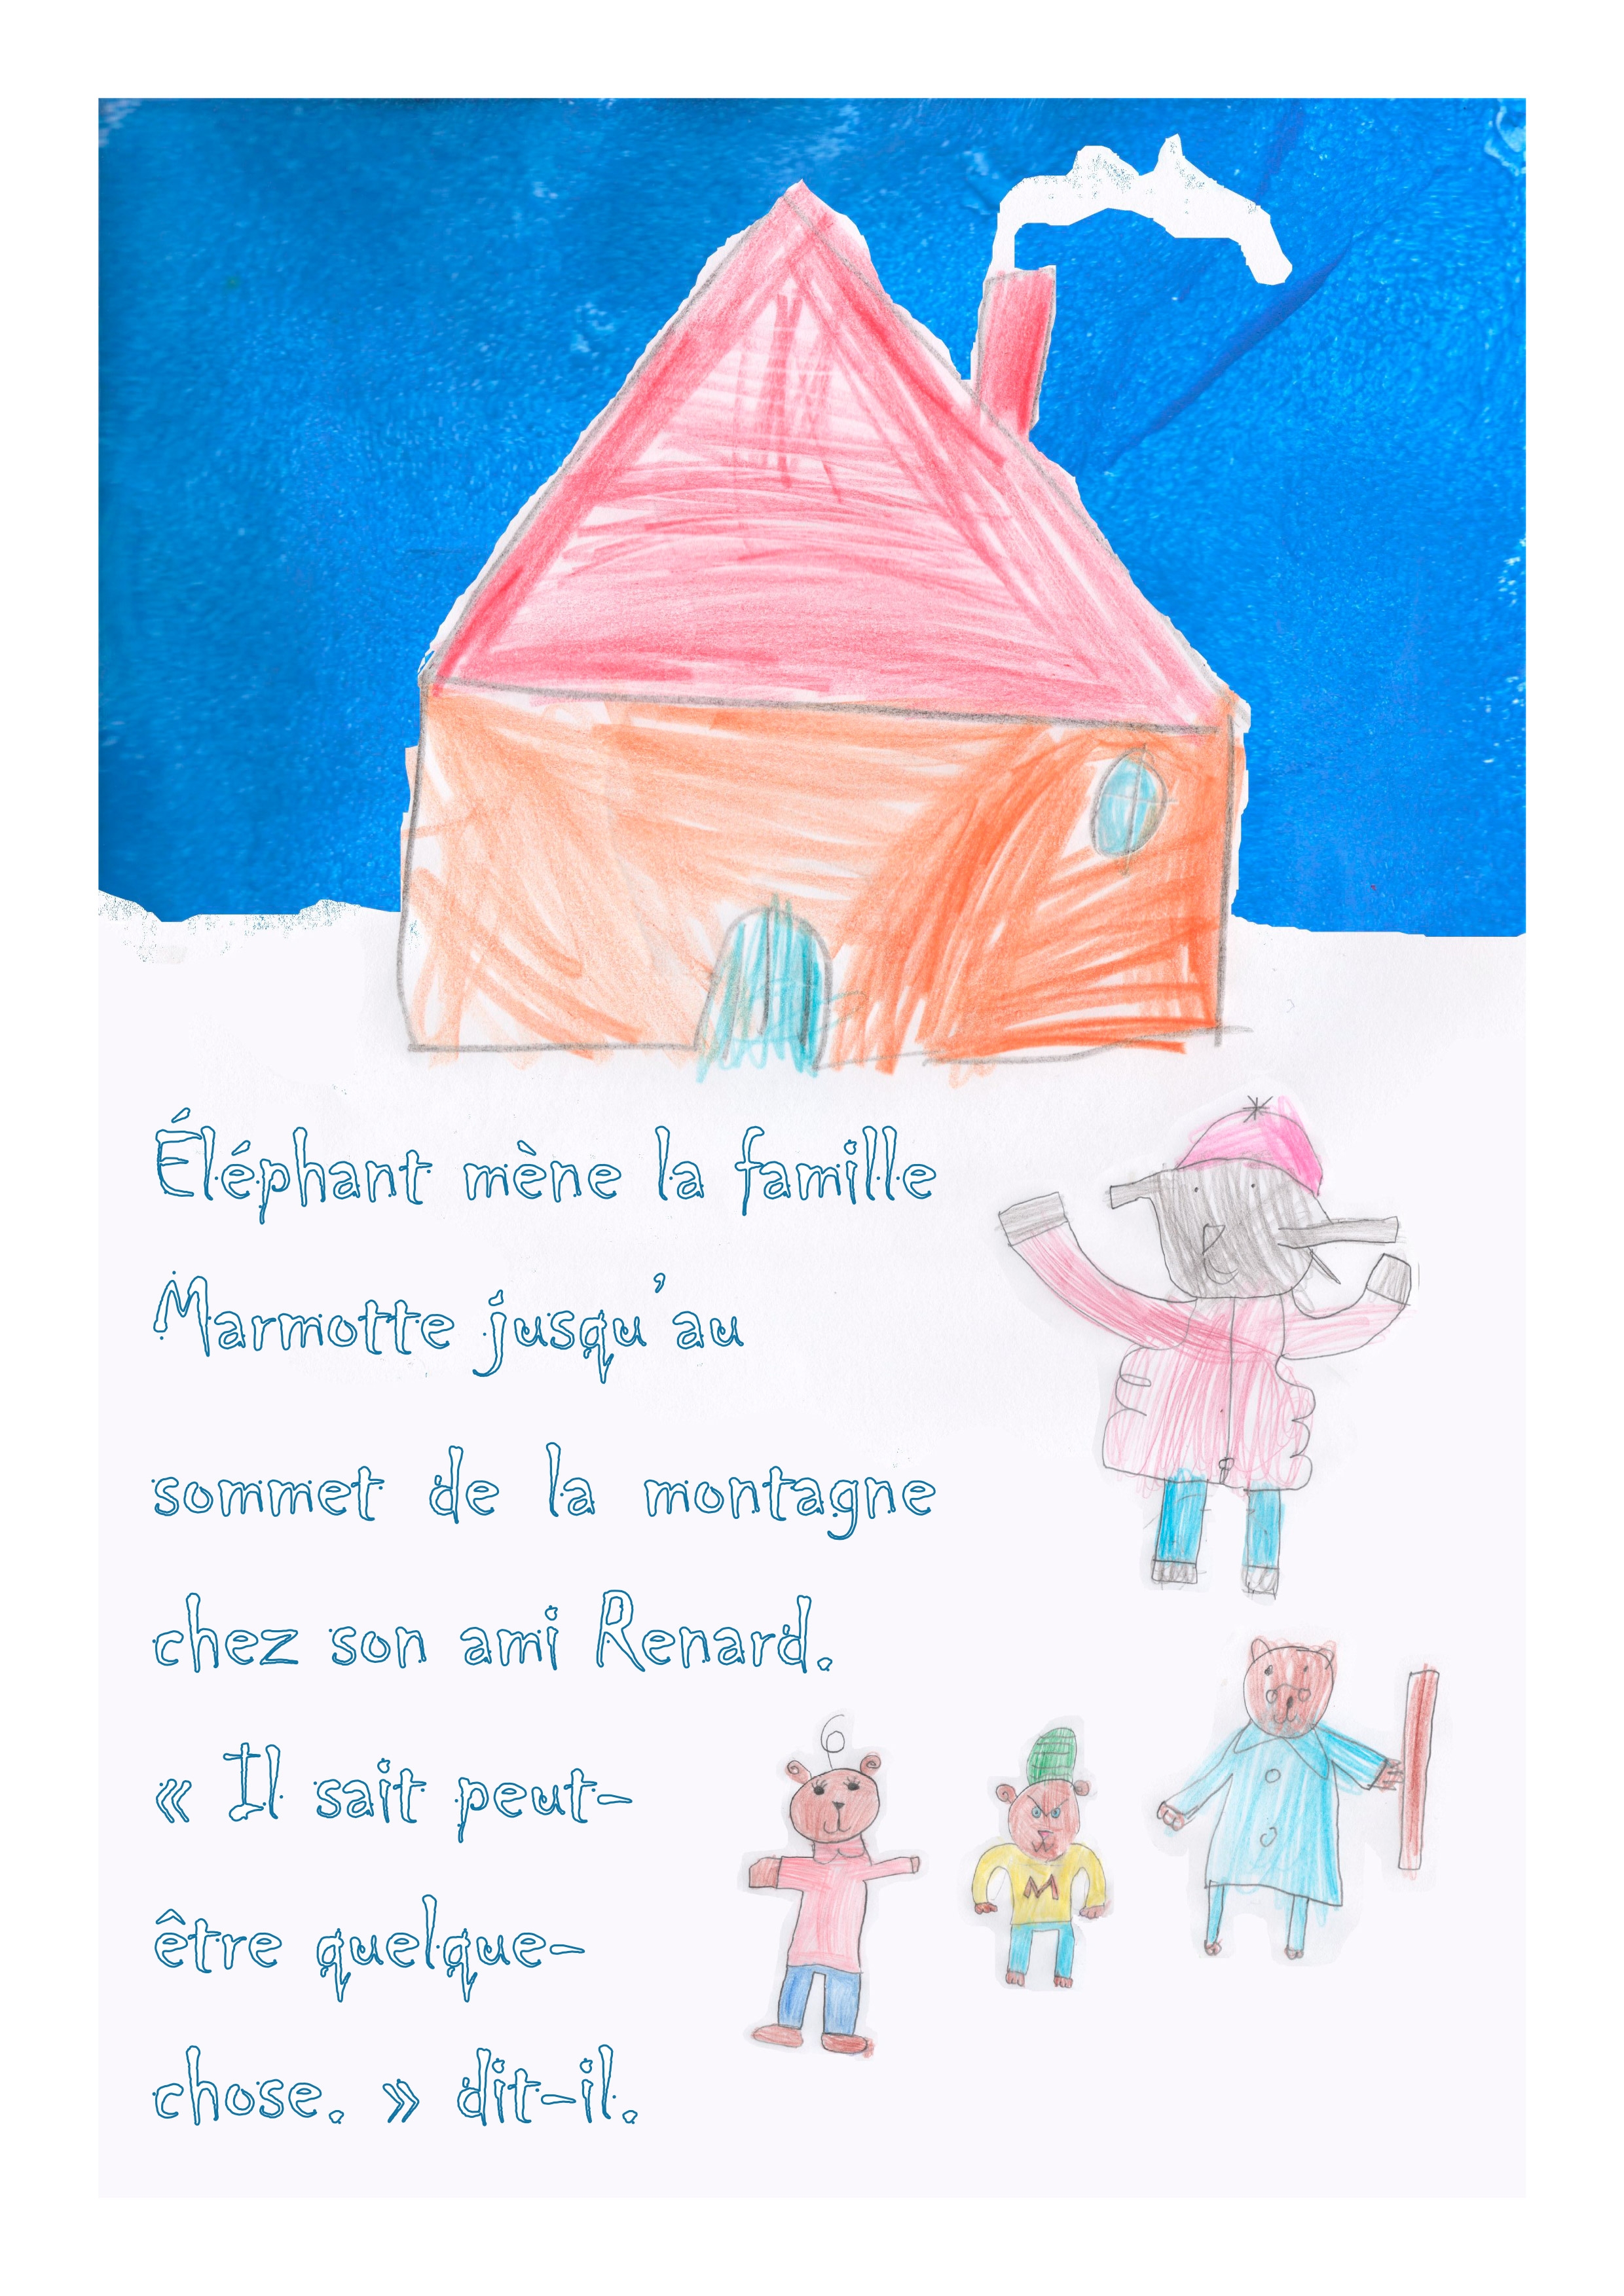 Éléphant mène la famille
Marmotte jusqu'au
sommet de la montagne
chez son ami Renard.
« Il sait peut-
être quelque-
chose. » dit-il.
M